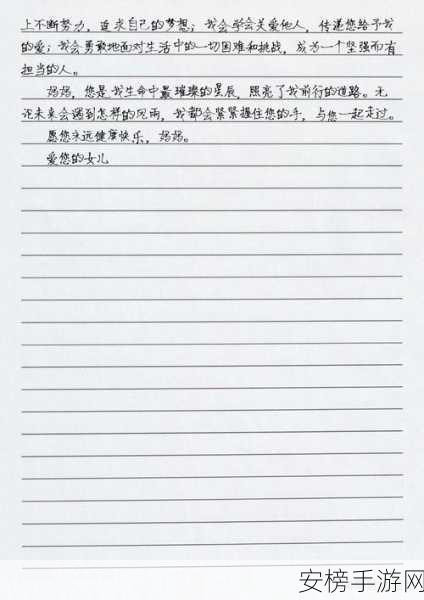 上不断努力，追求自己的梦想；我会学会关爱他人，传递您给予我
的爱；我会勇敢地面对生活中的一切困难和挑战，成为一个坚强而有
担当的人。
妈妈，您是我生命中最璀璨的星辰，照亮了我前行的道路。无
论未来会遇到怎样的风雨，我都会紧紧握住您的手，与您一起走过。
愿您永远健康快乐，妈妈。
爱您的女儿
安榜手游网